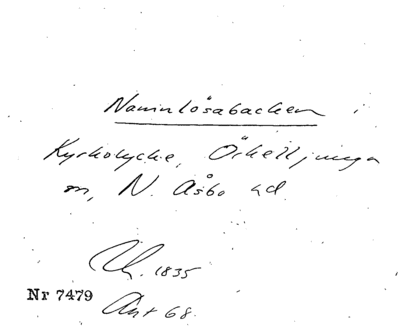 Namnlösabacken i
Kyrkolycke, Örkelljunga
sn, N. Åsbo hd.
Lh. 1835
Nr 7479
Ant 68.